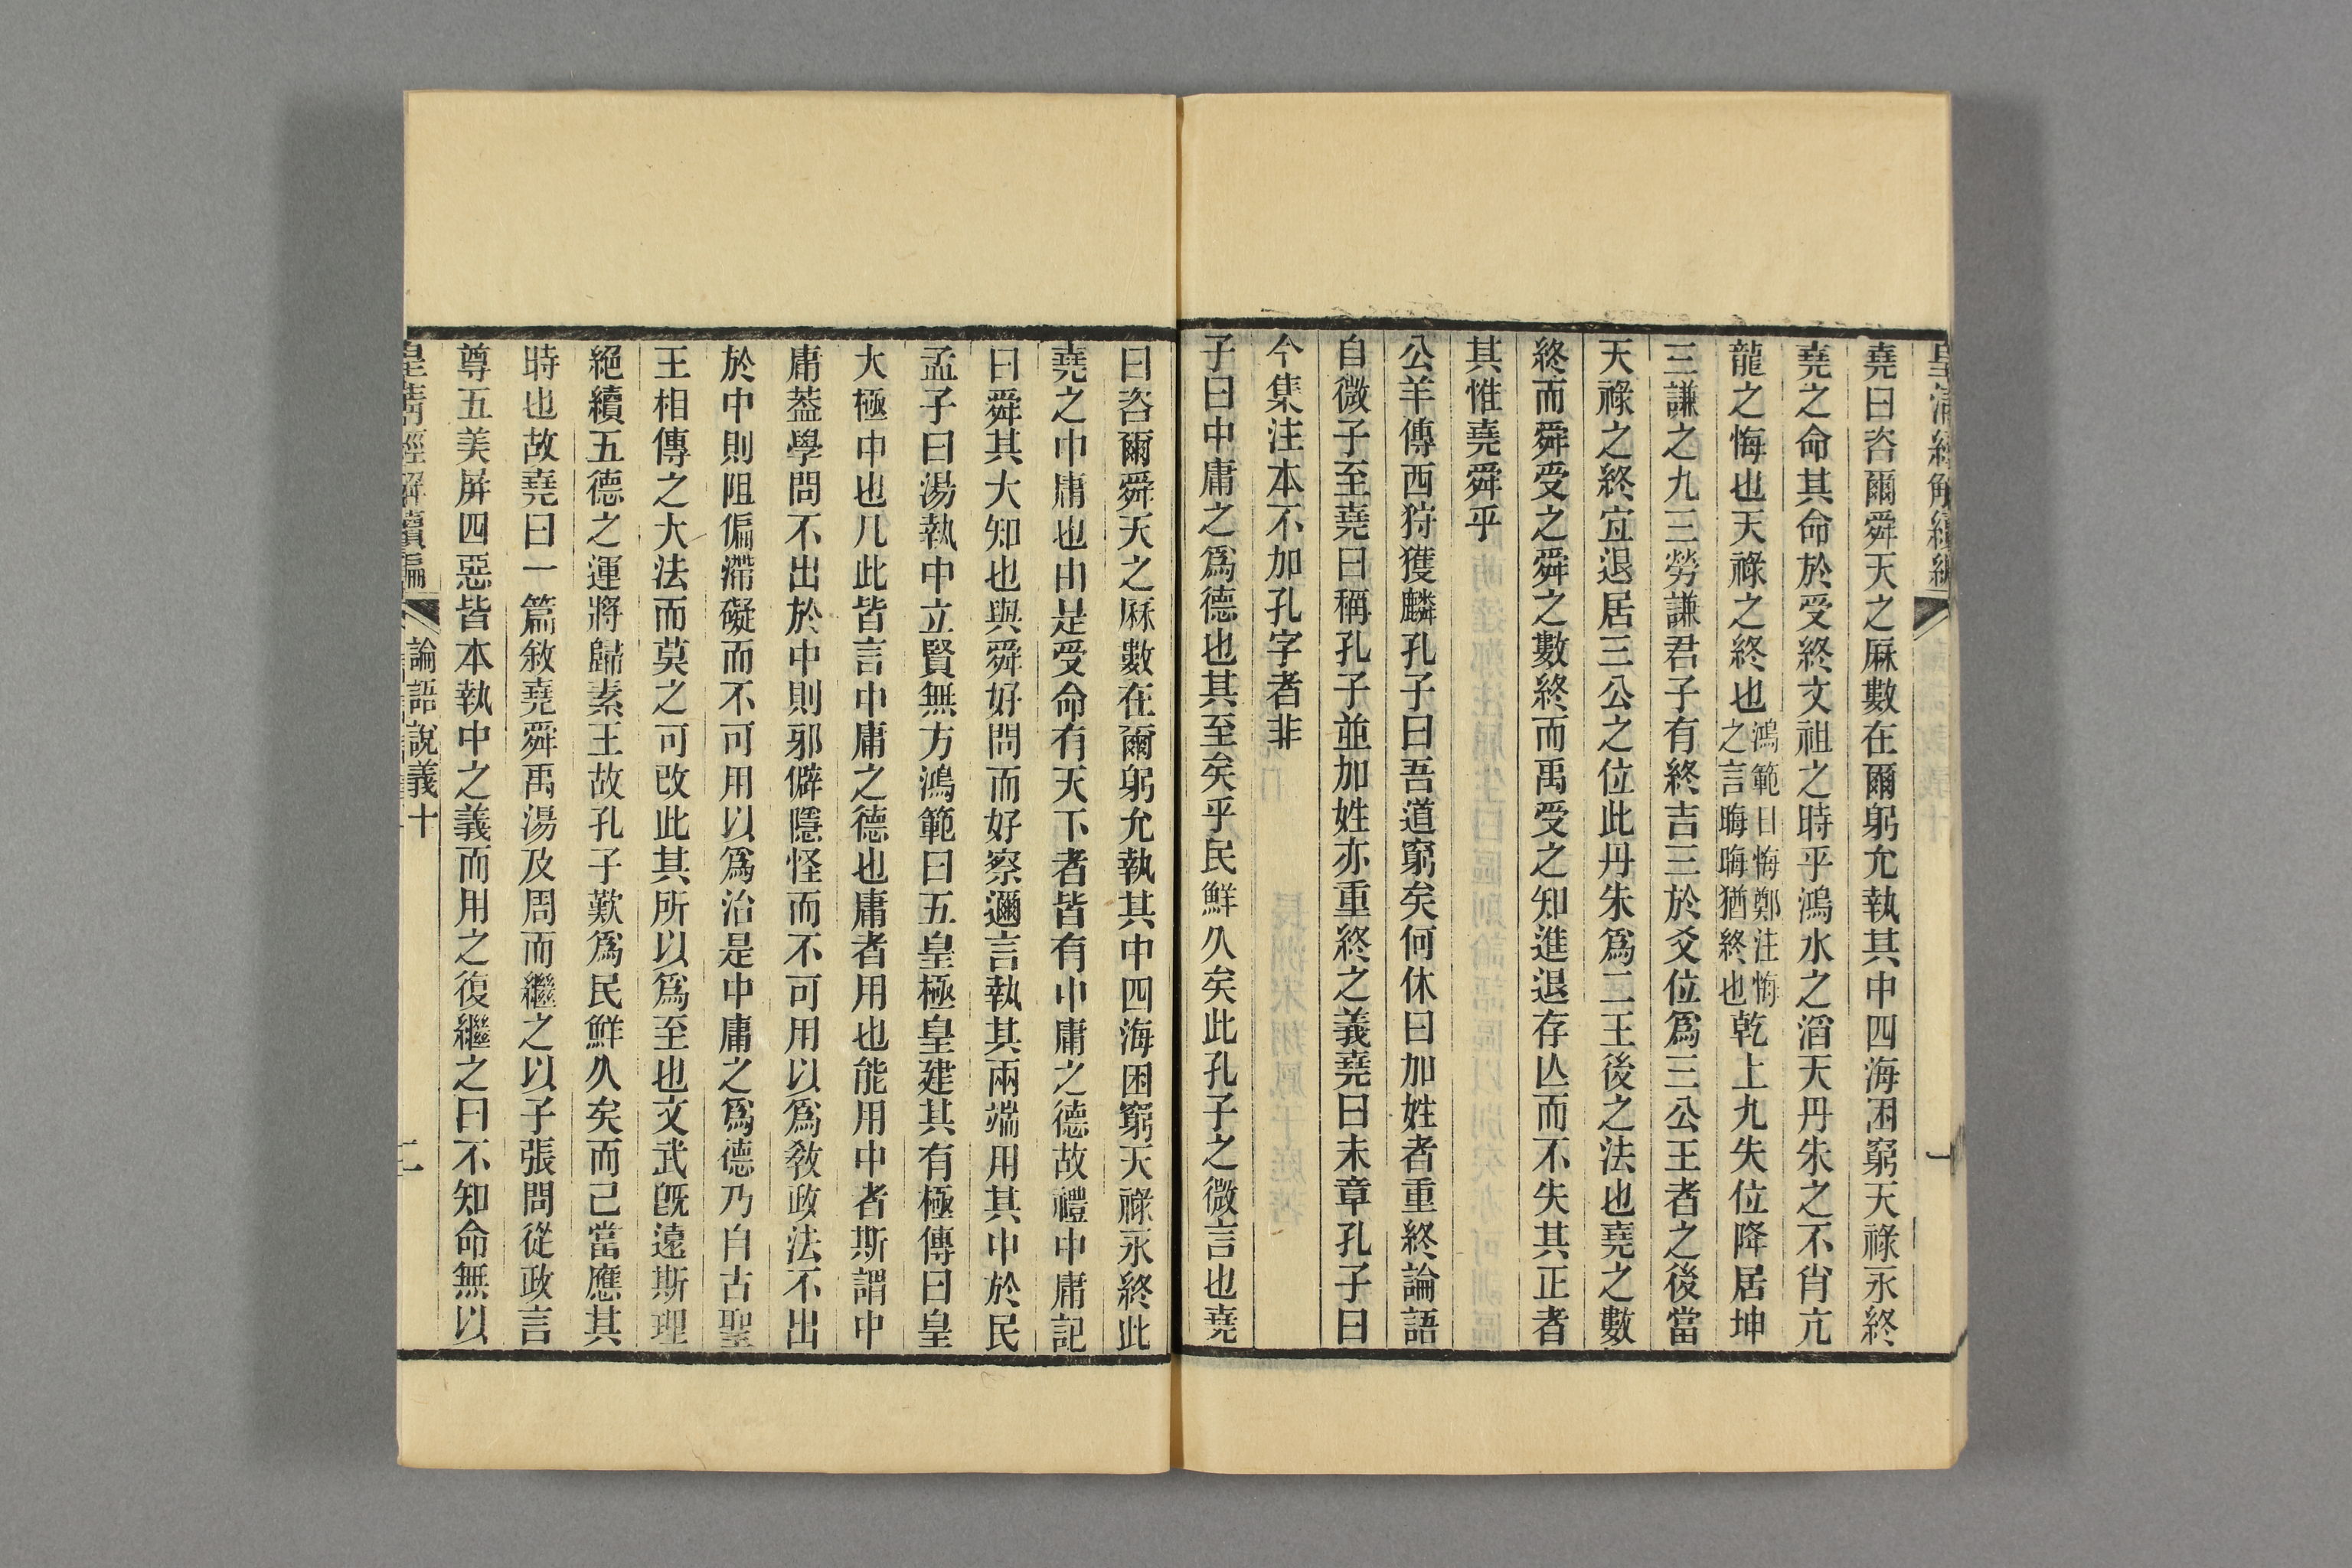 堯曰咨爾舜天之厤數在爾躬允執其中四海困窮天祿永終
堯之命其命於受終文祖之時乎鴻水之滔天丹朱之不肖亢
龍之悔也天祿之終也鴻範曰悔鄭注悔之言晦晦猶終也乾上九失位降居坤
三謙之九三勞謙君子有終吉三於爻位爲三公王者之後當
天祿之終宜退居三公之位此丹朱爲二王後之法也堯之數
終而舜受之舜之數終而禹受之知進退存亾而不失其正者
其惟堯舜乎
公羊傳西狩獲麟孔子曰吾道窮矣何休曰加姓者重終論語
自微子至堯曰稱孔子並加姓亦重終之義堯曰末章孔子曰
今集注本不加孔字者非
子曰中庸之爲德也其至矣乎民鮮久矣此孔子之微言也堯
曰咨爾舜天之厤數在爾躬允執其中四海困窮天祿永終此
堯之中庸也由是受命有天下者皆有中庸之德故禮中庸記
曰舜其大知也與舜好問而好察邇言執其兩端用其中於民
孟子曰湯執中立賢無方鴻範曰五皇極皇建其有極傳曰皇
大極中也凡此皆言中庸之德也庸者用也能用中者斯謂中
庸葢學問不出於中則邪僻隱怪而不可用以爲敎政法不出
於中則阻偏滯礙而不可用以爲治是中庸之爲德乃自古聖
王相傳之大法而莫之可改此其所以爲至也文武旣遠斯理
絕續五德之運將歸素王故孔子歎爲民鮮久矣而己當應其
時也故堯曰一篇敘堯舜禹湯及周而繼之以子張問從政言
尊五美屏四惡皆本執中之義而用之復繼之曰不知命無以
皇淸經解續編
論語說義十
二